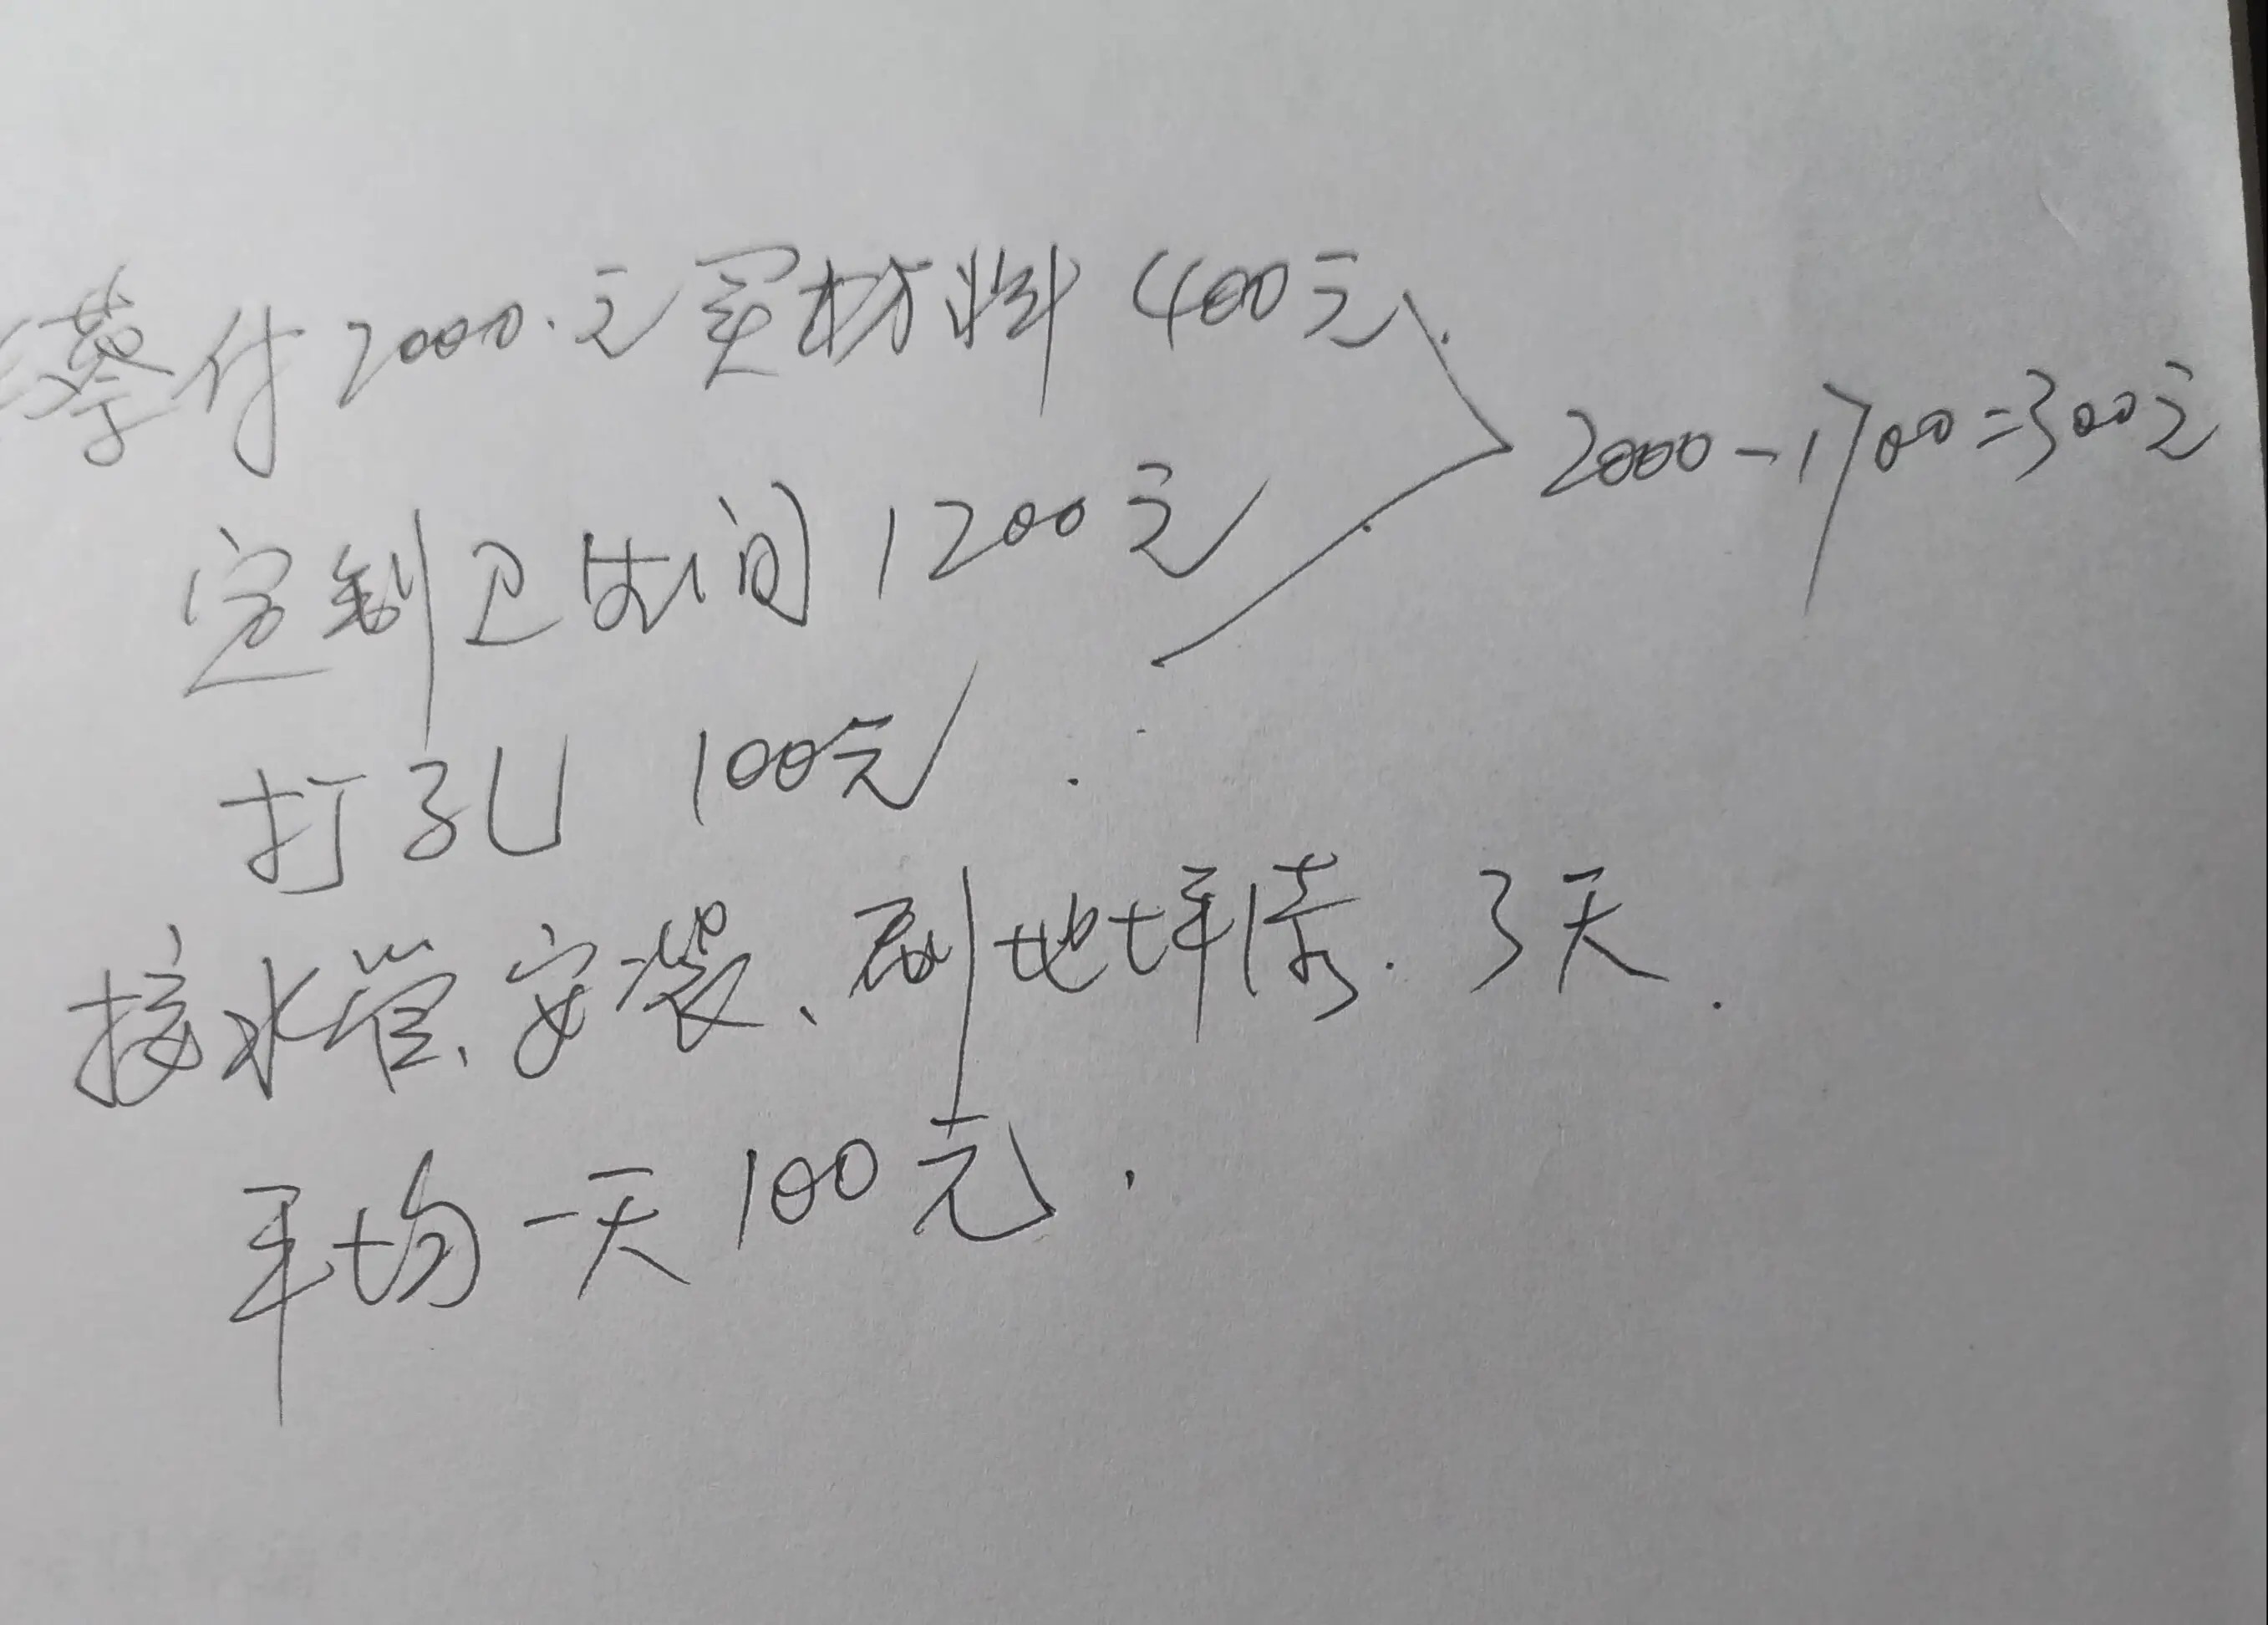 蔡付2000.元买材料400元
2000-1700=300元
定制卫生间1200元
打孔 100元.
接水管、安装、刷地坪漆.3天.
平均一天100元.